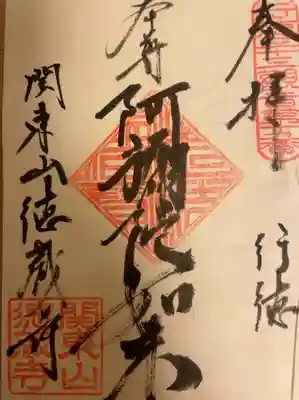 奉拝
行徳
本尊
阿彌陀如来
関東山徳蔵寺
関東山
徳蔵寺